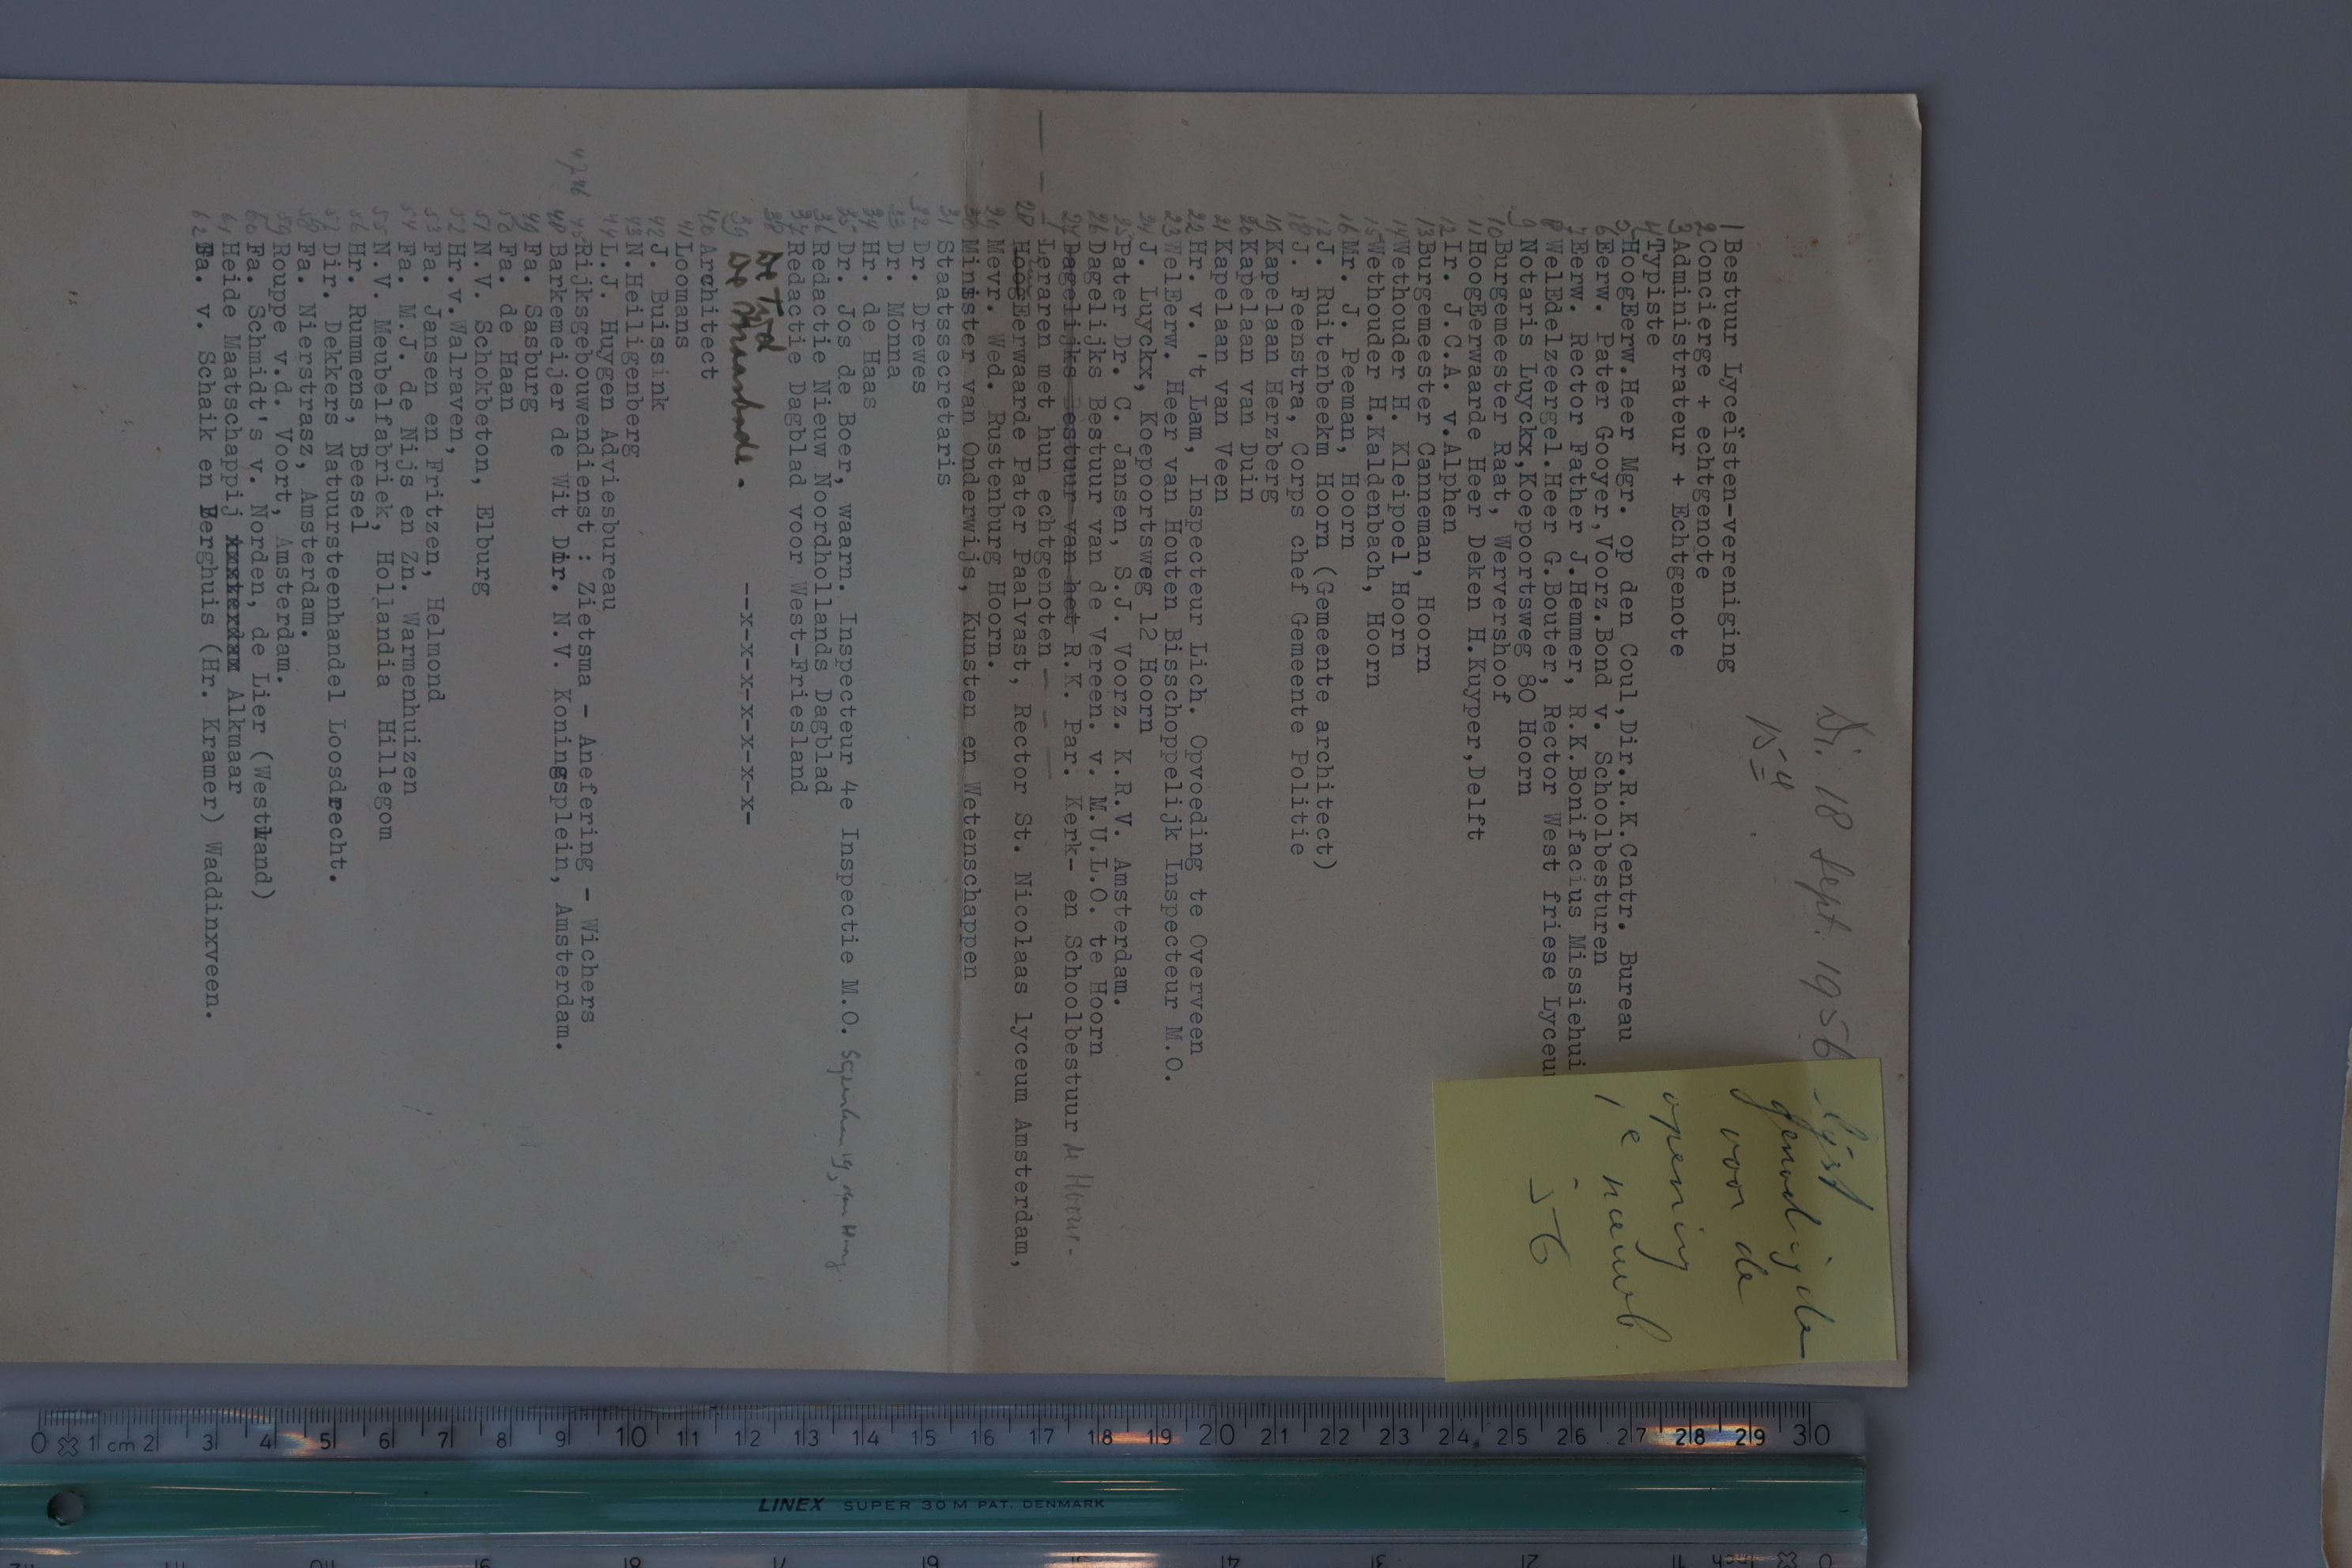 Di. 18 Sept. 1956
15-4
Lijst
genodigde
voor de
opening
1e nieuwb.
- 56
1 Bestuur Lyceïsten-vereniging
2 Concierge + echtgenote
3 Administrateur + Echtgenote
4 Typiste
5 HoogEerw.Heer Mgr. op den Coul,Dir.R.K.Centr. Bureau
6 Eerw. Pater Gooyer,Voorz.Bond v. Schoolbesturen
7 Eerw. Rector Father J.Hemmer, R.K.Bonifacius Missiehui
8 WelEdelzeergel.Heer G.Bouter, Rector West friese Lyceu
9 Notaris Luyckx,Koepoortsweg 80 Hoorn
10 Burgemeester Raat, Wervershoof
11 HoogEerwaarde Heer Deken H.Kuyper,Delft
12 Ir. J.C.A. v.Alphen
13 Burgemeester Canneman, Hoorn
14 Wethouder H. Kleipoel Hoorn
15 Wethouder H.Kaldenbach, Hoorn
16 Mr. J. Peeman, Hoorn
17 J. Ruitenbeekm Hoorn (Gemeente architect)
18 J. Feenstra, Corps chef Gemeente Politie
19 Kapelaan Herzberg
20 Kapelaan van Duin
21 Kapelaan van Veen
22 Hr. v. 't Lam, Inspecteur Lich. Opvoeding te Overveen
23 WelEerw. Heer van Houten Bisschoppelijk Inspecteur M.O.
24 J. Luyckx, Koepoortsweg 12 Hoorn
25 Pater Dr. C. Jansen, S.J. Voorz. K.R.V. Amsterdam.
26 Dagelijks Bestuur van de Vereen. v. M.U.L.O. te Hoorn
27 Dagelijks Bestuur van het R.K. Par. Kerk- en Schoolbestuur te Hoorn.
Leraren met hun echtgenoten
28 HoogEerwaarde Pater Paalvast, Rector St. Nicolaas lyceum Amsterdam,
29 Mevr. Wed. Rustenburg Hoorn.
30 Minister van Onderwijs, Kunsten en Wetenschappen
31 Staatssecretaris
32 Dr. Drewes
33 Dr. Monna
34 Hr. de Haas
35 Dr. Jos de Boer, waarn. Inspecteur 4e Inspectie M.O. den Haag.
36 Redactie Nieuw Noordhollands Dagblad
37 Redactie Dagblad voor West-Friesland
38 De Tijd
39 De Maasbode.
--x-x-x-x-x-x-x-x-
40 Architect
41 Loomans
42 J. Buissink
43 N.Heiligenberg
44 L.J. Huygen Adviesbureau
45 46 47 Rijksgebouwendienst : Zietsma - Anefering - Wichers
48 Barkemeijer de Wit Dir. N.V. Koningsplein, Amsterdam.
49 Fa. Sasburg
50 Fa. de Haan
51 N.V. Schokbeton, Elburg
52 Hr.v.Walraven,
53 Fa. Jansen en Fritzen, Helmond
54 Fa. M.J. de Nijs en Zn. Warmenhuizen
55 N.V. Meubelfabriek, Hollandia Hillegom
56 Hr. Rummens, Beesel
57 Dir. Dekkers Natuursteenhandel Loosdrecht.
58 Fa. Nierstrasz, Amsterdam.
59 Rouppe v.d. Voort, Amsterdam.
60 Fa. Schmidt's v. Norden, de Lier (Westland)
61 Heide Maatschappij Alkmaar
62 Fa. v. Schaik en Berghuis (Hr. Kramer) Waddinxveen.
0 1 cm 2 3 4 5 6 7 8 9 10 11 12 13 14 15 16 17 18 19 20 21 22 23 24 25 26 27 28 29 30
LINEX SUPER 30 M PAT. DENMARK